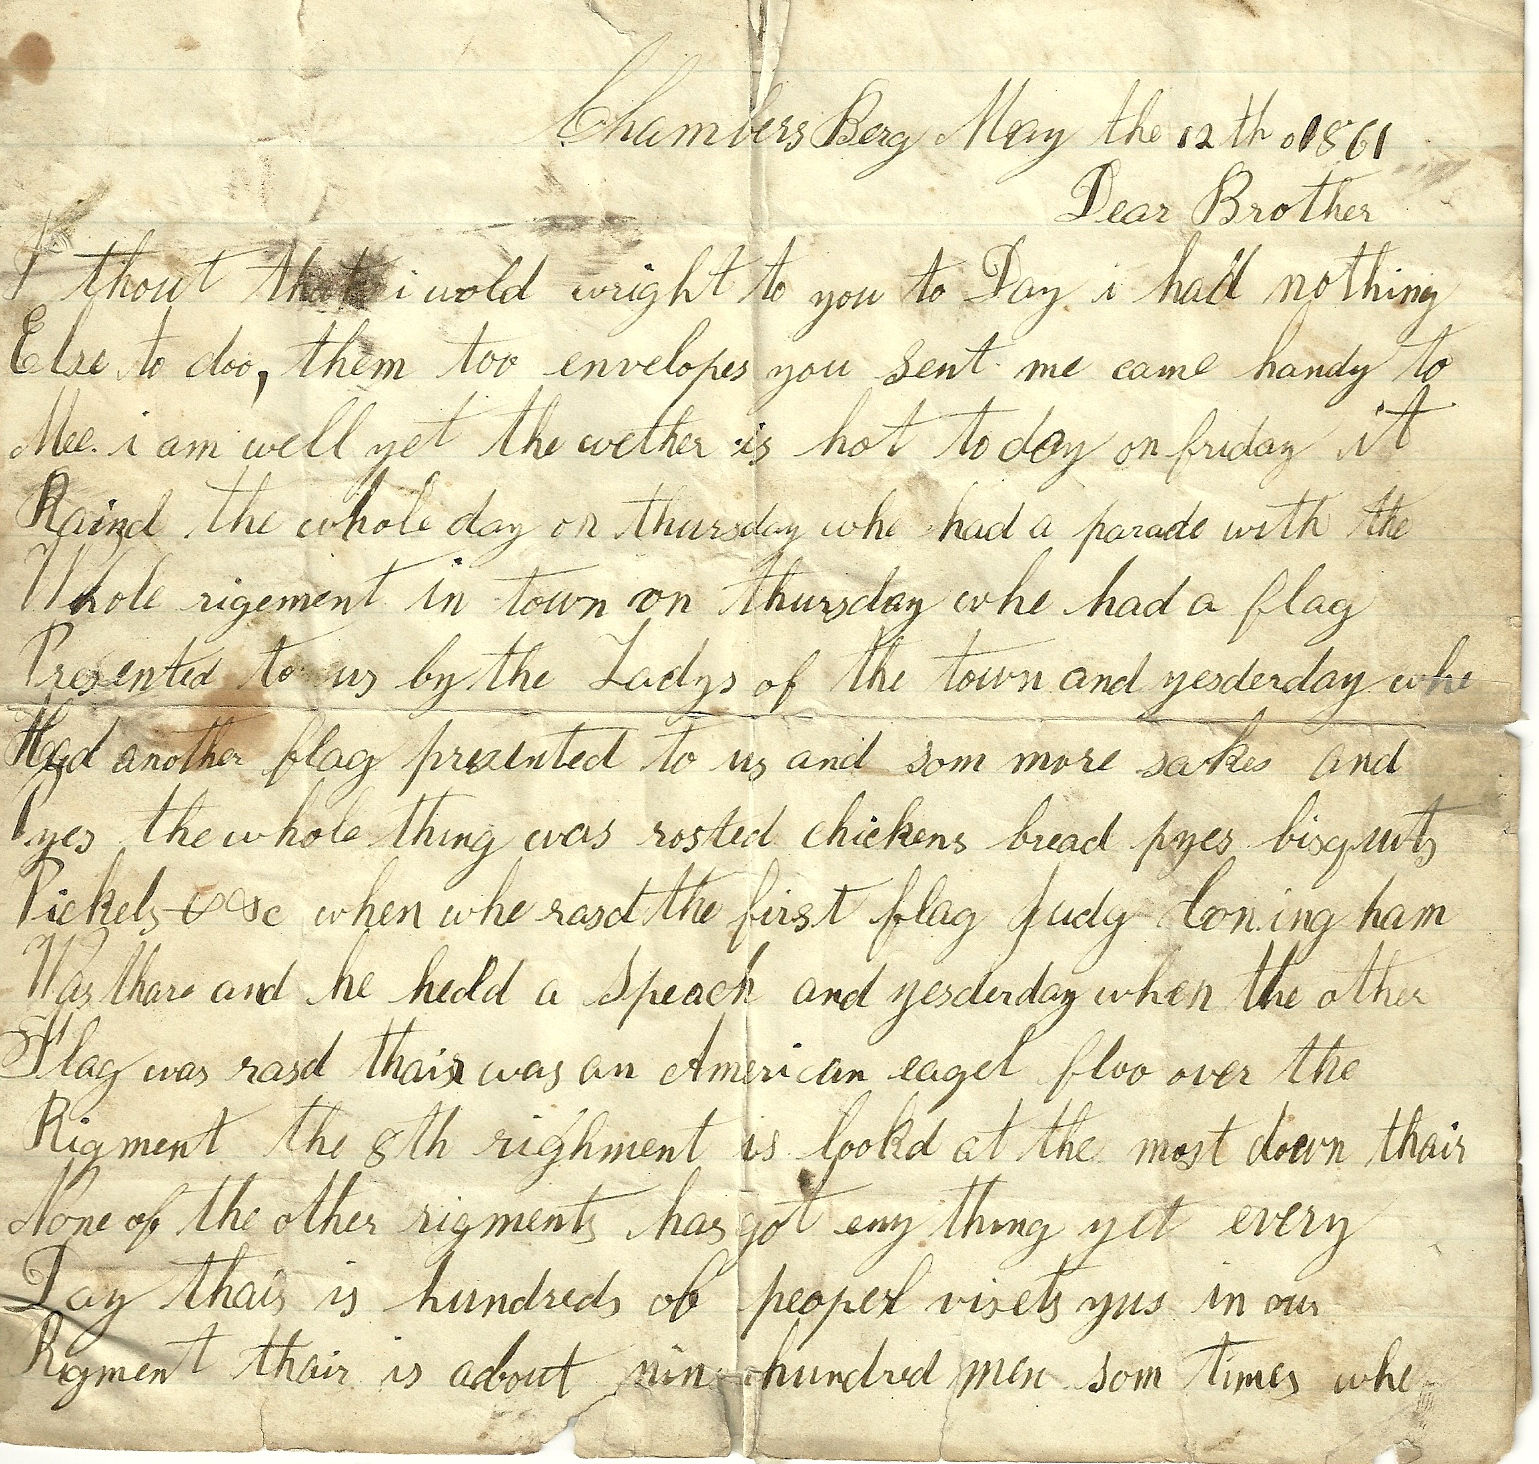 Chambers Berg May the 12th 1861
Dear Brother
I thout that i wold wright to you to Day i had nothing
Else to doo, them too envelopes you sent me came handy to
Mee. i am well yet the wether is hot to day on friday it
Raind the whole day on thursday whe had a parade with the
Whole rigement in town on thursday whe had a flag
Presented to us by the Ladys of the town and yesderday whe
Had another flag prezented to us and som more sakes and
yes the whole thing was rosted chickens bread pyes bisquits
Pickels &c when whe rasd the first flag Judg Coningham
Was thare and he hedld a Speach and yesderday when the other
Flag was rasd thair was an American eagel floo over the
Rigment the 8th righment is lookd at the most down thair
None of the other rigments has got eny thing yet every
Day thair is hundreds of peopel visets yus in our
Rigment thair is about nin hundred men som times whe